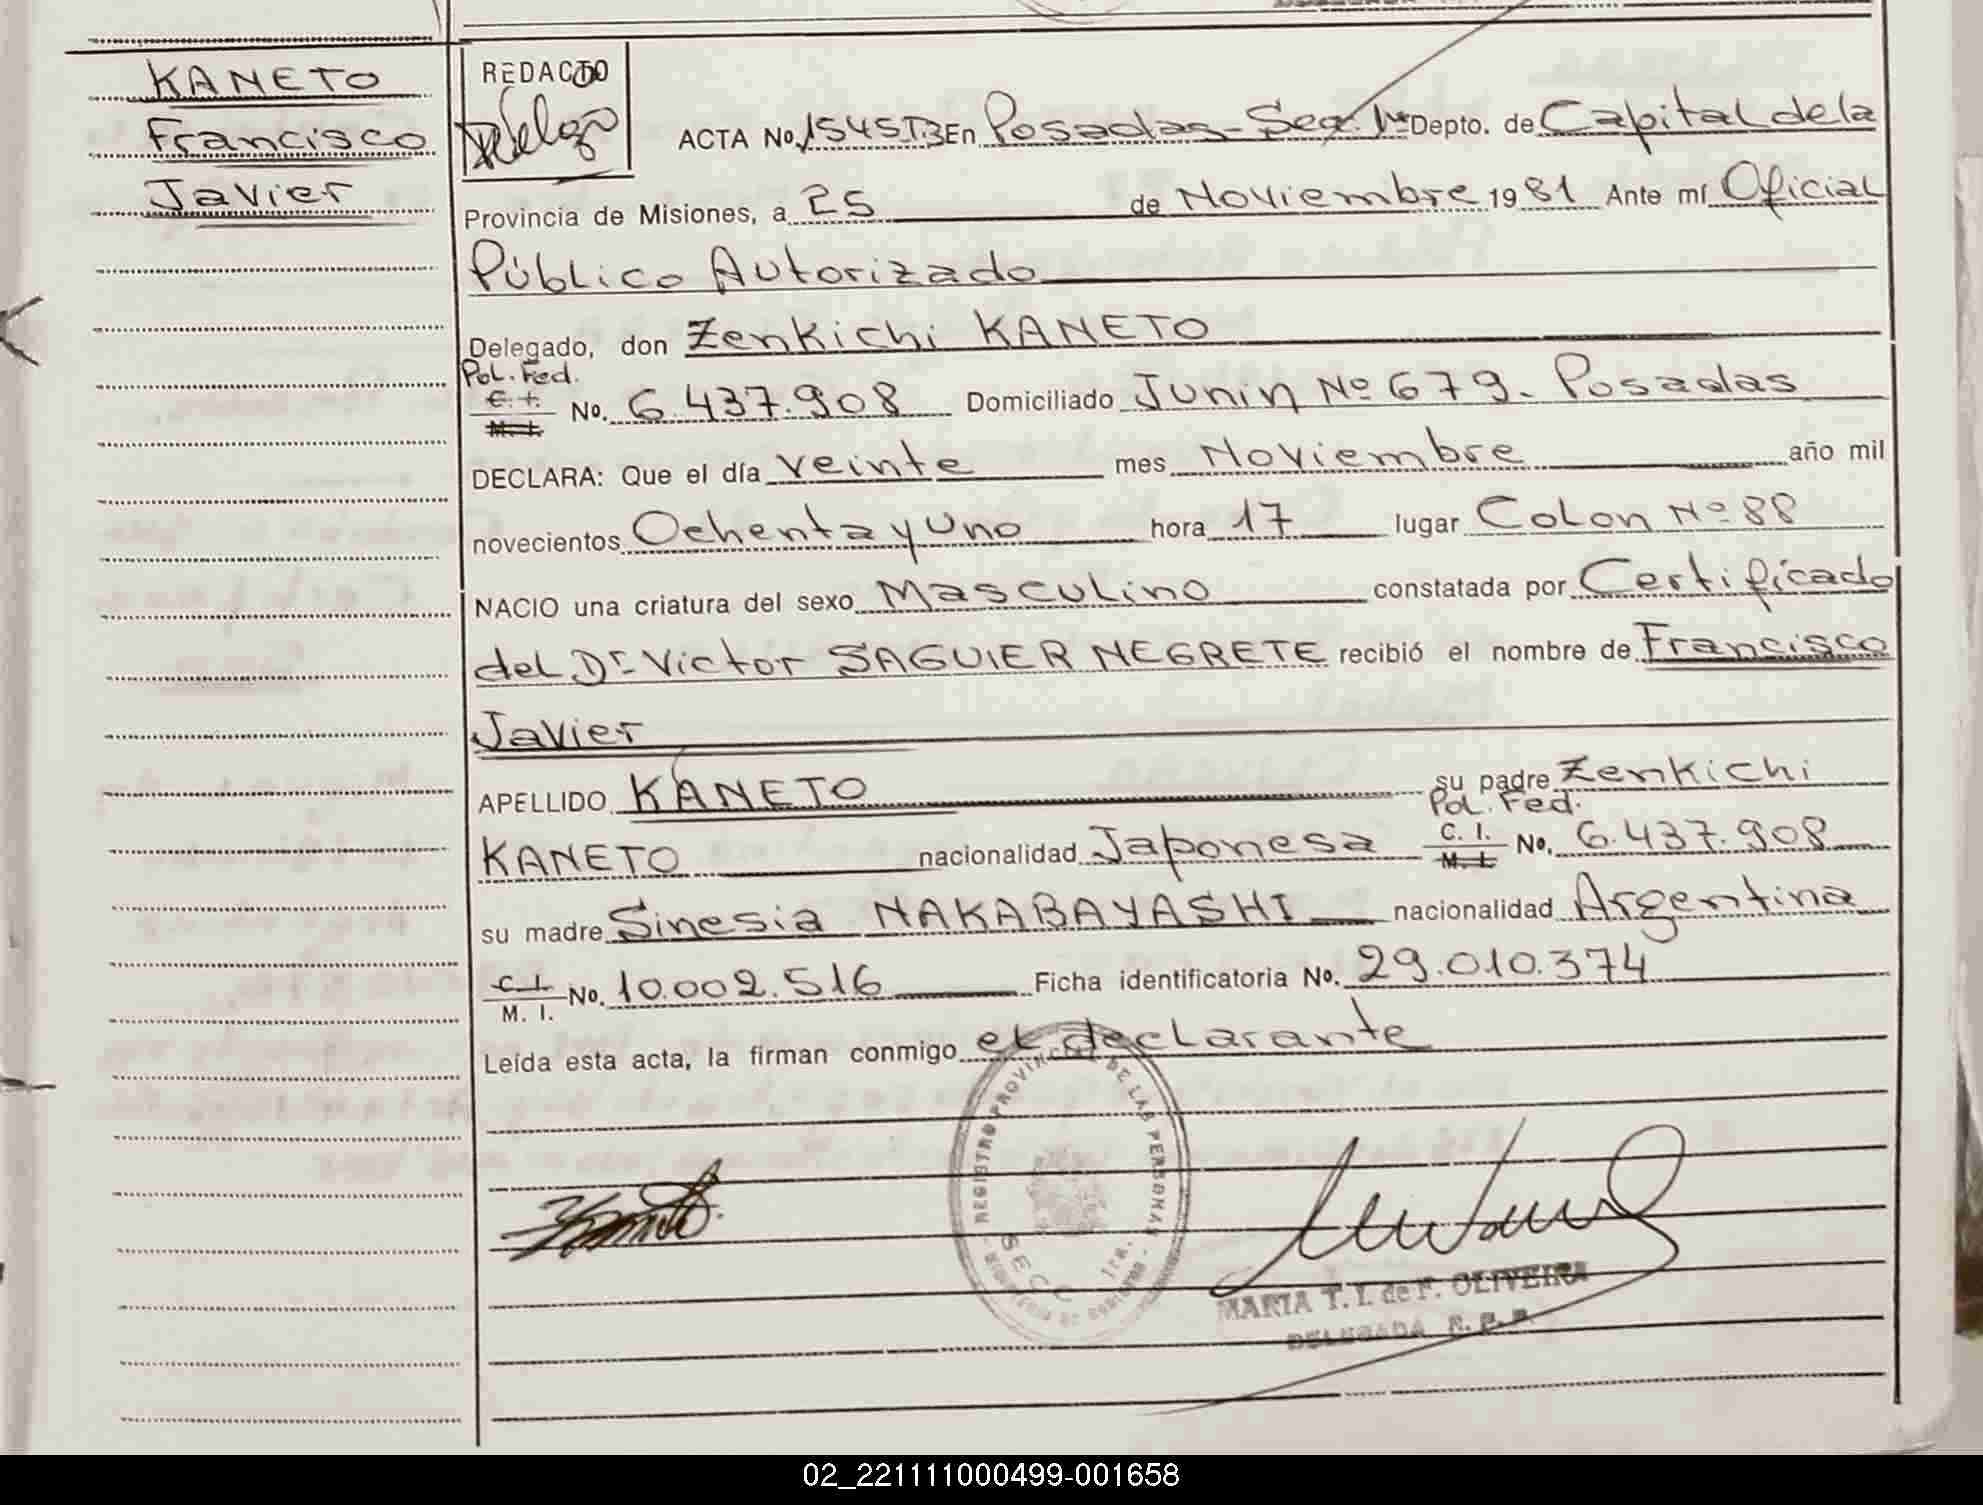 KANETO
Francisco
Javier
REDACTO
ACTA No. 1545 T.3 En Posadas - Secc. 1ra Depto. de Capital de la
Provincia de Misiones, a 25 de Noviembre 1981 Ante mí Oficial
Público Autorizado
Delegado, don Zenkichi KANETO
Pol. Fed.
C. I.
M. I.
No. 6.437.908 Domiciliado Junin Nº 679 - Posadas
DECLARA: Que el día veinte mes Noviembre año mil
novecientos Ochenta y Uno hora 17 lugar Colon Nº 88
NACIO una criatura del sexo Masculino constatada por Certificado
del Dr Victor SAGUIER NEGRETE recibió el nombre de Francisco
Javier
APELLIDO KANETO su padre Zenkichi
Pol. Fed.
KANETO nacionalidad Japonesa C. I. M. I. No. 6.437.908
su madre Sinesia NAKABAYASHI nacionalidad Argentina
C. I.
M. I.
No. 10.002.516 Ficha identificatoria No. 29.010.374
Leída esta acta, la firman conmigo el declarante
REGISTRO PROVINCIAL DE LAS PERSONAS
SECC. 1ra.
MARIA T. I. de F. OLIVEIRA
DELEGADA R. P. P.
02_221111000499-001658